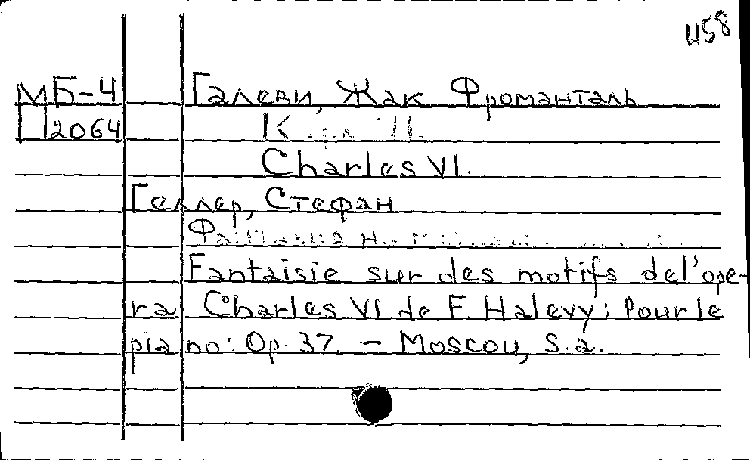 458
МБ-4 Галеви, Жак Фроманталь
П 2064
Charles VI.
Геллер, Стефан
Fantaisie sur des motifs de l'ope-
ra Charles VI de F. Halevy: Pour le
piano: Op. 37. - Moscou, s.a.